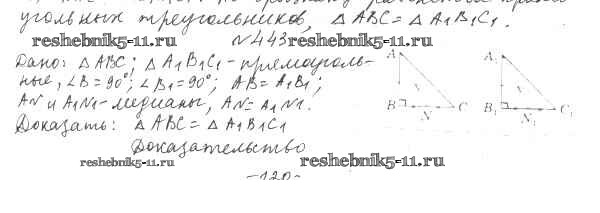 угольных треугольников, △ ABC = △ A1B1C1.
reshebnik5-11.ru
№443
reshebnik5-11.ru
Дано: △ ABC; △ A1B1C1 - прямоуголь-
ные, ∠B = 90°; ∠B1 = 90°; AB = A1B1;
AN и A1N1 - медианы, AN = A1N1.
Доказать: △ ABC = △ A1B1C1
Доказательство
A
B
N
C
A1
B1
N1
C1
reshebnik5-11.ru
reshebnik5-11.ru
-120-